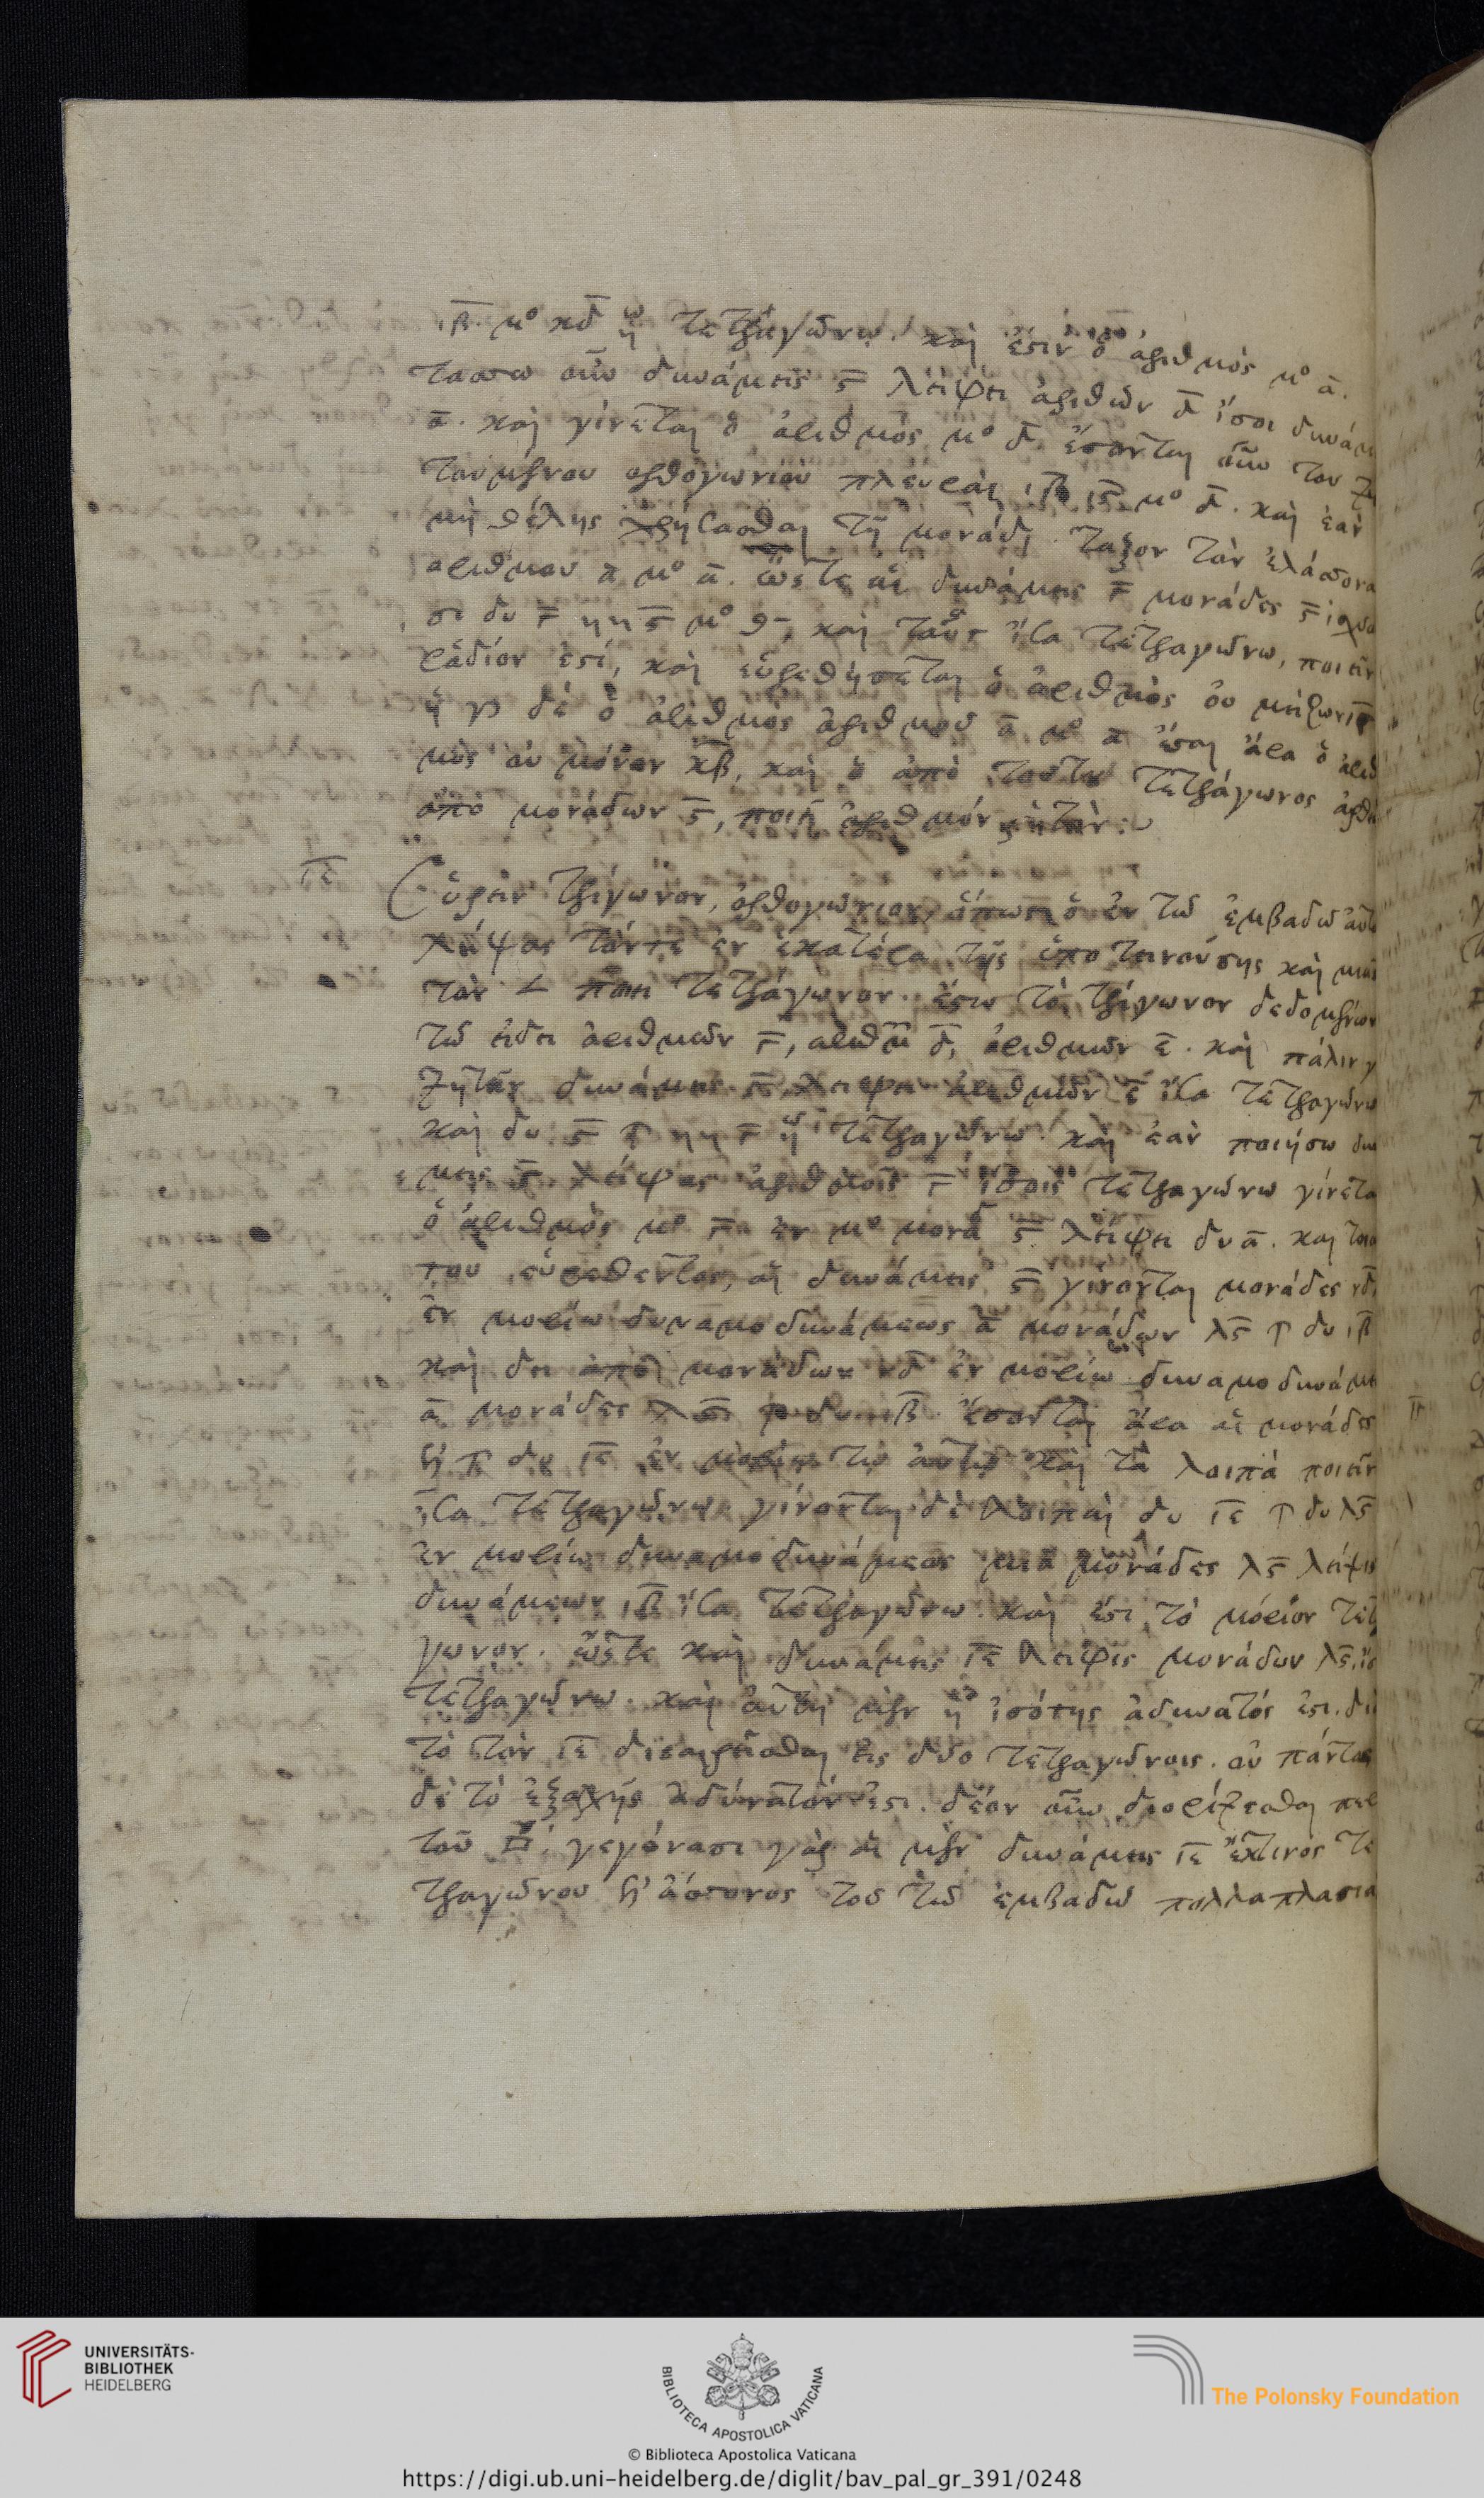 ιβ μο κδ ἴ τετραγώνω. καὶ ἔστιν ὁ ἀριθμὸς μο α.
τασσω οὖν δυνάμεις ϛ λείψει ἀριθμῶν δ ἴσοι δυνάμ
α. καὶ γίνεται ὁ ἀριθμὸς μο δ. ἔσονται οὖν του ζη
τουμένου ορθογωνίου πλευραὶ ιβ ιϛ μο δ. καὶ ἐὰν
μὴ θέλης χρήσασθαι τῆ μονάδι ταξον τὸν ἐλάσσονα
αριθμου α μο α. ὥστε αἱ δυνάμεις γ μονάδες ϛ
σι δυ γ ϛ μο θ, καὶ ταῦτα ἴσα τετραγώνω, ποιεῖν
ράδιόν ἐστι, καὶ εὑρεθήσεται ὁ ἀριθμὸς οὐ μείζων
δὲ ὁ ἀριθμὸς ἀριθμοῦ α μο α ἔσται ἄρα ὁ ἀριθ
μὸς οὐ μόνον κβ, καὶ ὁ ἀπὸ τούτου τετράγωνος ἀρθεὶς
ἀπὸ μονάδων ϛ, ποιεῖ ἀριθμόν ῥητόν:
ιε
Εὑρεῖν τρίγωνον, ὀρθογώνιον, ὅπως ὁ ἐν τῶ ἐμβαδῶ αὐτοῦ
λείψας τόν τε ἐν ἑκατέρα τῆς ὑποτεινούσης καὶ μιᾶς
τῶν ποιεῖ τετράγωνον. ἔστω τὸ τρίγωνον δεδομένον
τῶ εἴδει ἀριθμῶν γ, αριθμῶν δ, ἀριθμῶν ε. καὶ πάλιν γ
ζητεῖν δυνάμεις ϛ, λείψει ἀριθμῶν ε ἴσα τετραγώνω
καὶ δυ ϛ γ τετραγώνω. καὶ ἐὰν ποιήσω δυ
μεις ϛ λείψας ἀριθμοὺς γ ἴσοις τετραγώνω γίνεται
ὁ ἀριθμὸς μο γ ἐν μο μονάδων ϛ λείψει δυ α. και τοιο
του εὑρεθέντος, αἱ δυνάμεις ϛ γίνονται μονάδες νδ
ἐν μορίω δυναμοδυνάμεως α μονάδων λϛ δυ ιβ
καὶ δεῖ ἀπὸ μονάδων νδ ἐν μορίω δυναμοδυνάμε
α μονάδες λϛ δυ ιβ. ἔσονται ἄρα αἱ μονάδες
δυ ιε ἐν μορίω τῶ αὐτῶ καὶ τὰ λοιπὰ ποιεῖν
ἴσα τετραγώνω γίνονται δὲ λοιπαὶ δυ ιε δυ λϛ
ἐν μορίω δυναμοδυνάμεως μιᾶ μονάδες λϛ λείψει
δυνάμεων ιβ ἴσα τετραγώνω. καὶ ἔστι τὸ μόριον τετ
γωνον. ὥστε καὶ δυνάμεις ιε λείψεις μονάδων λϛ, ἴσ
τετραγώνω. καὶ αὕτη μὲν ἡ ἰσότης ἀδυνατός ἐστι. διὰ
τὸ τὸν ιε διεαιρεῖσθαι εἰς δύο τετραγώνοις. οὐ πάντως
δὲ τὸ ἐξαρχῆς ἀδύνατόν ἐστι. δέον οὖν διορίζεσθαι περ
τοῦ γεγόνασι γὰρ αἱ μὲν δυνάμεις ιε ἔκτινος τε
τραγώνου ἐλάσσονος τοῦ τῶ ἐμβαδῶ πολλαπλασια
UNIVERSITÄTS-
BIBLIOTHEK
HEIDELBERG
BIBLIOTECA APOSTOLICA VATICANA
The Polonsky Foundation
© Biblioteca Apostolica Vaticana
https://digi.ub.uni-heidelberg.de/diglit/bav_pal_gr_391/0248